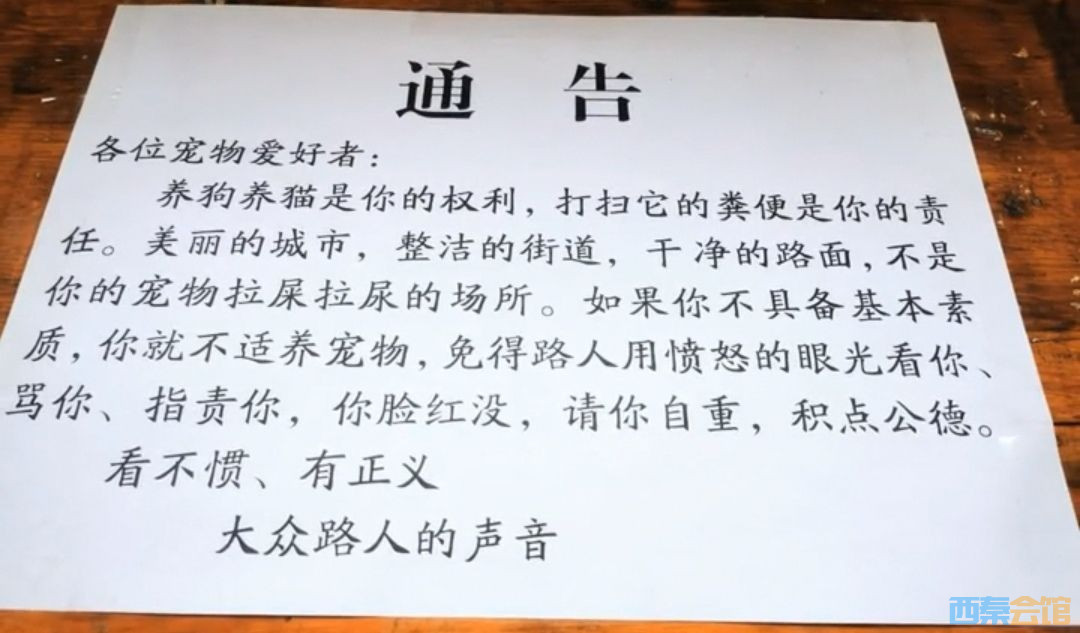 通 告
各位宠物爱好者：
养狗养猫是你的权利，打扫它的粪便是你的责
任。美丽的城市，整洁的街道，干净的路面，不是
你的宠物拉屎拉尿的场所。如果你不具备基本素
质，你就不适养宠物，免得路人用愤怒的眼光看你、
骂你、指责你，你脸红没，请你自重，积点公德。
看不惯、有正义
大众路人的声音
西秦会馆